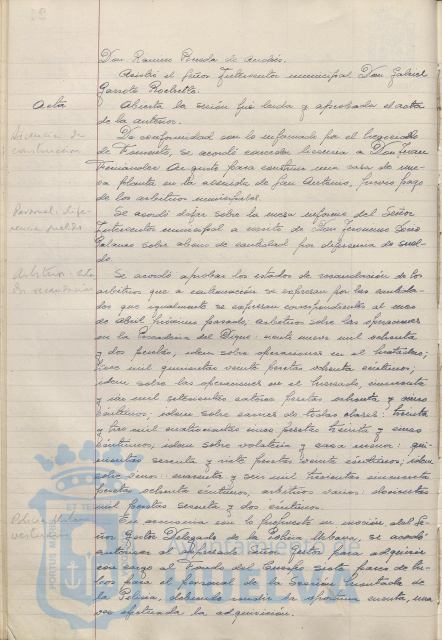 Don Ramon Poveda de Andrés.
Asistió el Señor Interventor municipal Don Gabriel
Garrote Rochette.
Acta
Abierta la sesión fué leida y aprobada el acta
de la anterior.
Licencia de
construcción
De conformidad con lo informado por el Negociado
de Fomento, se acordó conceder licencia a Don Juan
Fernandez Arquero para construir una casa de
planta en la avenida de San Antonio, previo pago
de los arbitrios municipales.
Personal:
Se acordó dejar sobre la mesa informe del Señor
Interventor municipal a escrito de Don Jeronimo
sobre abono de cantidad por diferencia de suel-
do.
Arbitrios:
Se acordó aprobar los estados de recaudación de los
arbitrios que a continuación se expresan por las cantida-
des que igualmente se expresan correspondientes al mes
de abril próximo pasado; arbitrios sobre las operaciones
en la Pescaderia del Dique: nueve mil ochenta
y dos pesetas, idem sobre operaciones en el Matadero;
mil quinientas veinte pesetas ochenta céntimos;
idem sobre las operaciones en el Mercado, cincuenta
y mil setecientas catorce pesetas ochenta y cinco
céntimos; idem sobre carnes de todas clases: treinta
y tres mil cuatrocientas once pesetas treinta y cinco
céntimos; idem sobre volateria y caza menor: qui-
nientas sesenta y siete pesetas veinte céntimos; idem
sobre vinos: cuarenta y un mil trescientas
pesetas ochenta céntimos, arbitrios varios: doscientas
mil pesetas sesenta y dos céntimos.
Policia
En armonia con lo propuesto en moción del Se-
ñor Gestor Delegado de la Policia Urbana, se acordó
autorizar al expresado Señor Gestor para adquirir
con cargo al Fondo del Cuerpo siete pares de
para el personal de la Sección Montada de
la Policia, debiendo rendir la oportuna cuenta, una
vez efectuada la adquisición.